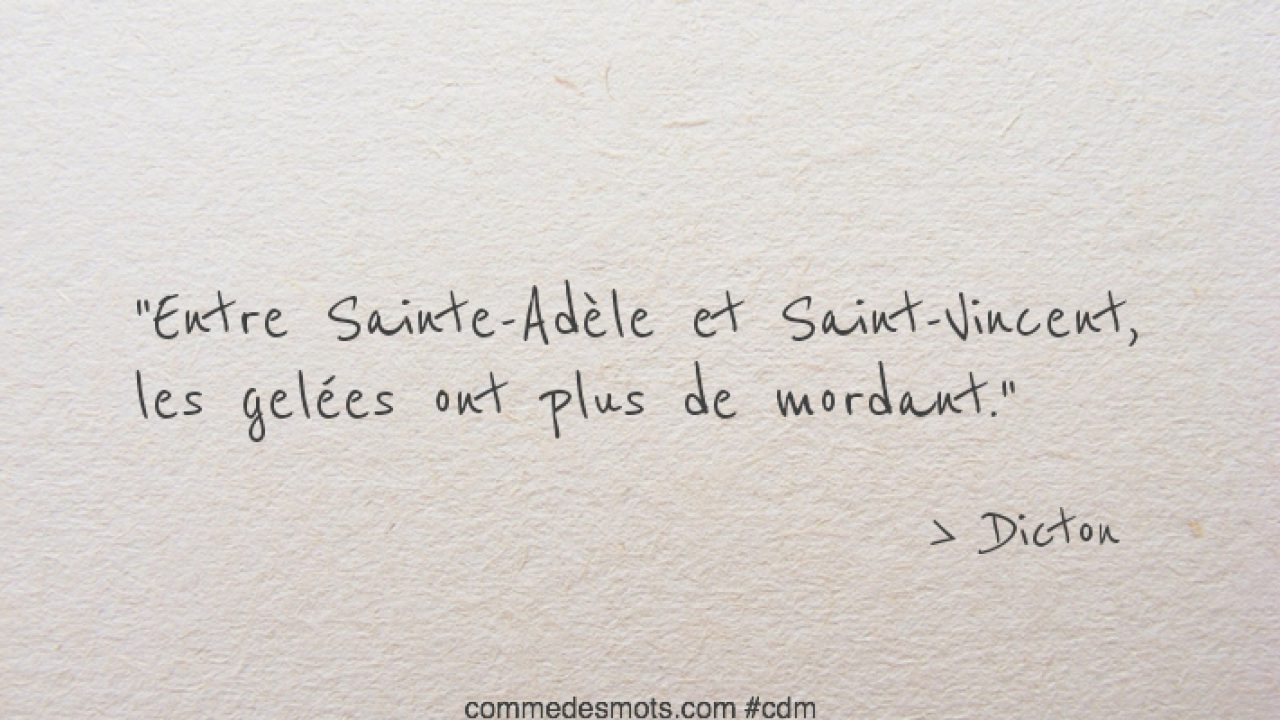 "Entre Sainte-Adèle et Saint-Vincent,
les gelées ont plus de mordant."
> Dicton
commedesmots.com #cdm